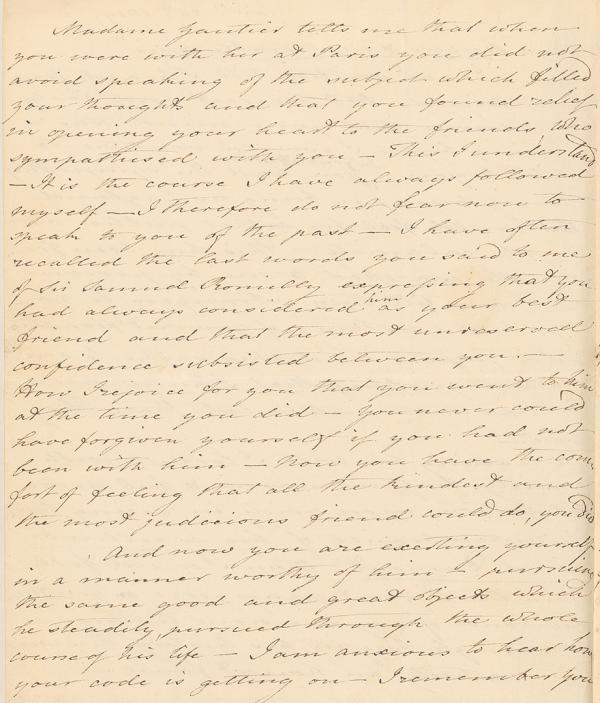 Madame Gautier tells me that when
you were with her at Paris you did not
avoid speaking of the subject which filled
your thoughts and that you found relief
in opening your heart to the friends who
sympathised with you – This I understand
– It is the course I have always followed
myself – I therefore do not fear now to
speak to you of the past – I have often
recalled the last words you said to me
of Sir Samuel Romilly expressing that you
had always considered him as your best
friend and that the most unreserved
confidence subsisted between you. –
How I rejoice for you that you went to him
at the time you did – You never could
have forgiven yourself if you had not
been with him – Now you have the com-
fort of feeling that all the kindest and
the most judicious friend could do, you did
And now you are exerting yourself
in a manner worthy of him – pursuing
the same good and great objects which
he steadily pursued through the whole
course of his life – I am anxious to hear how
your code is getting on – I remember you